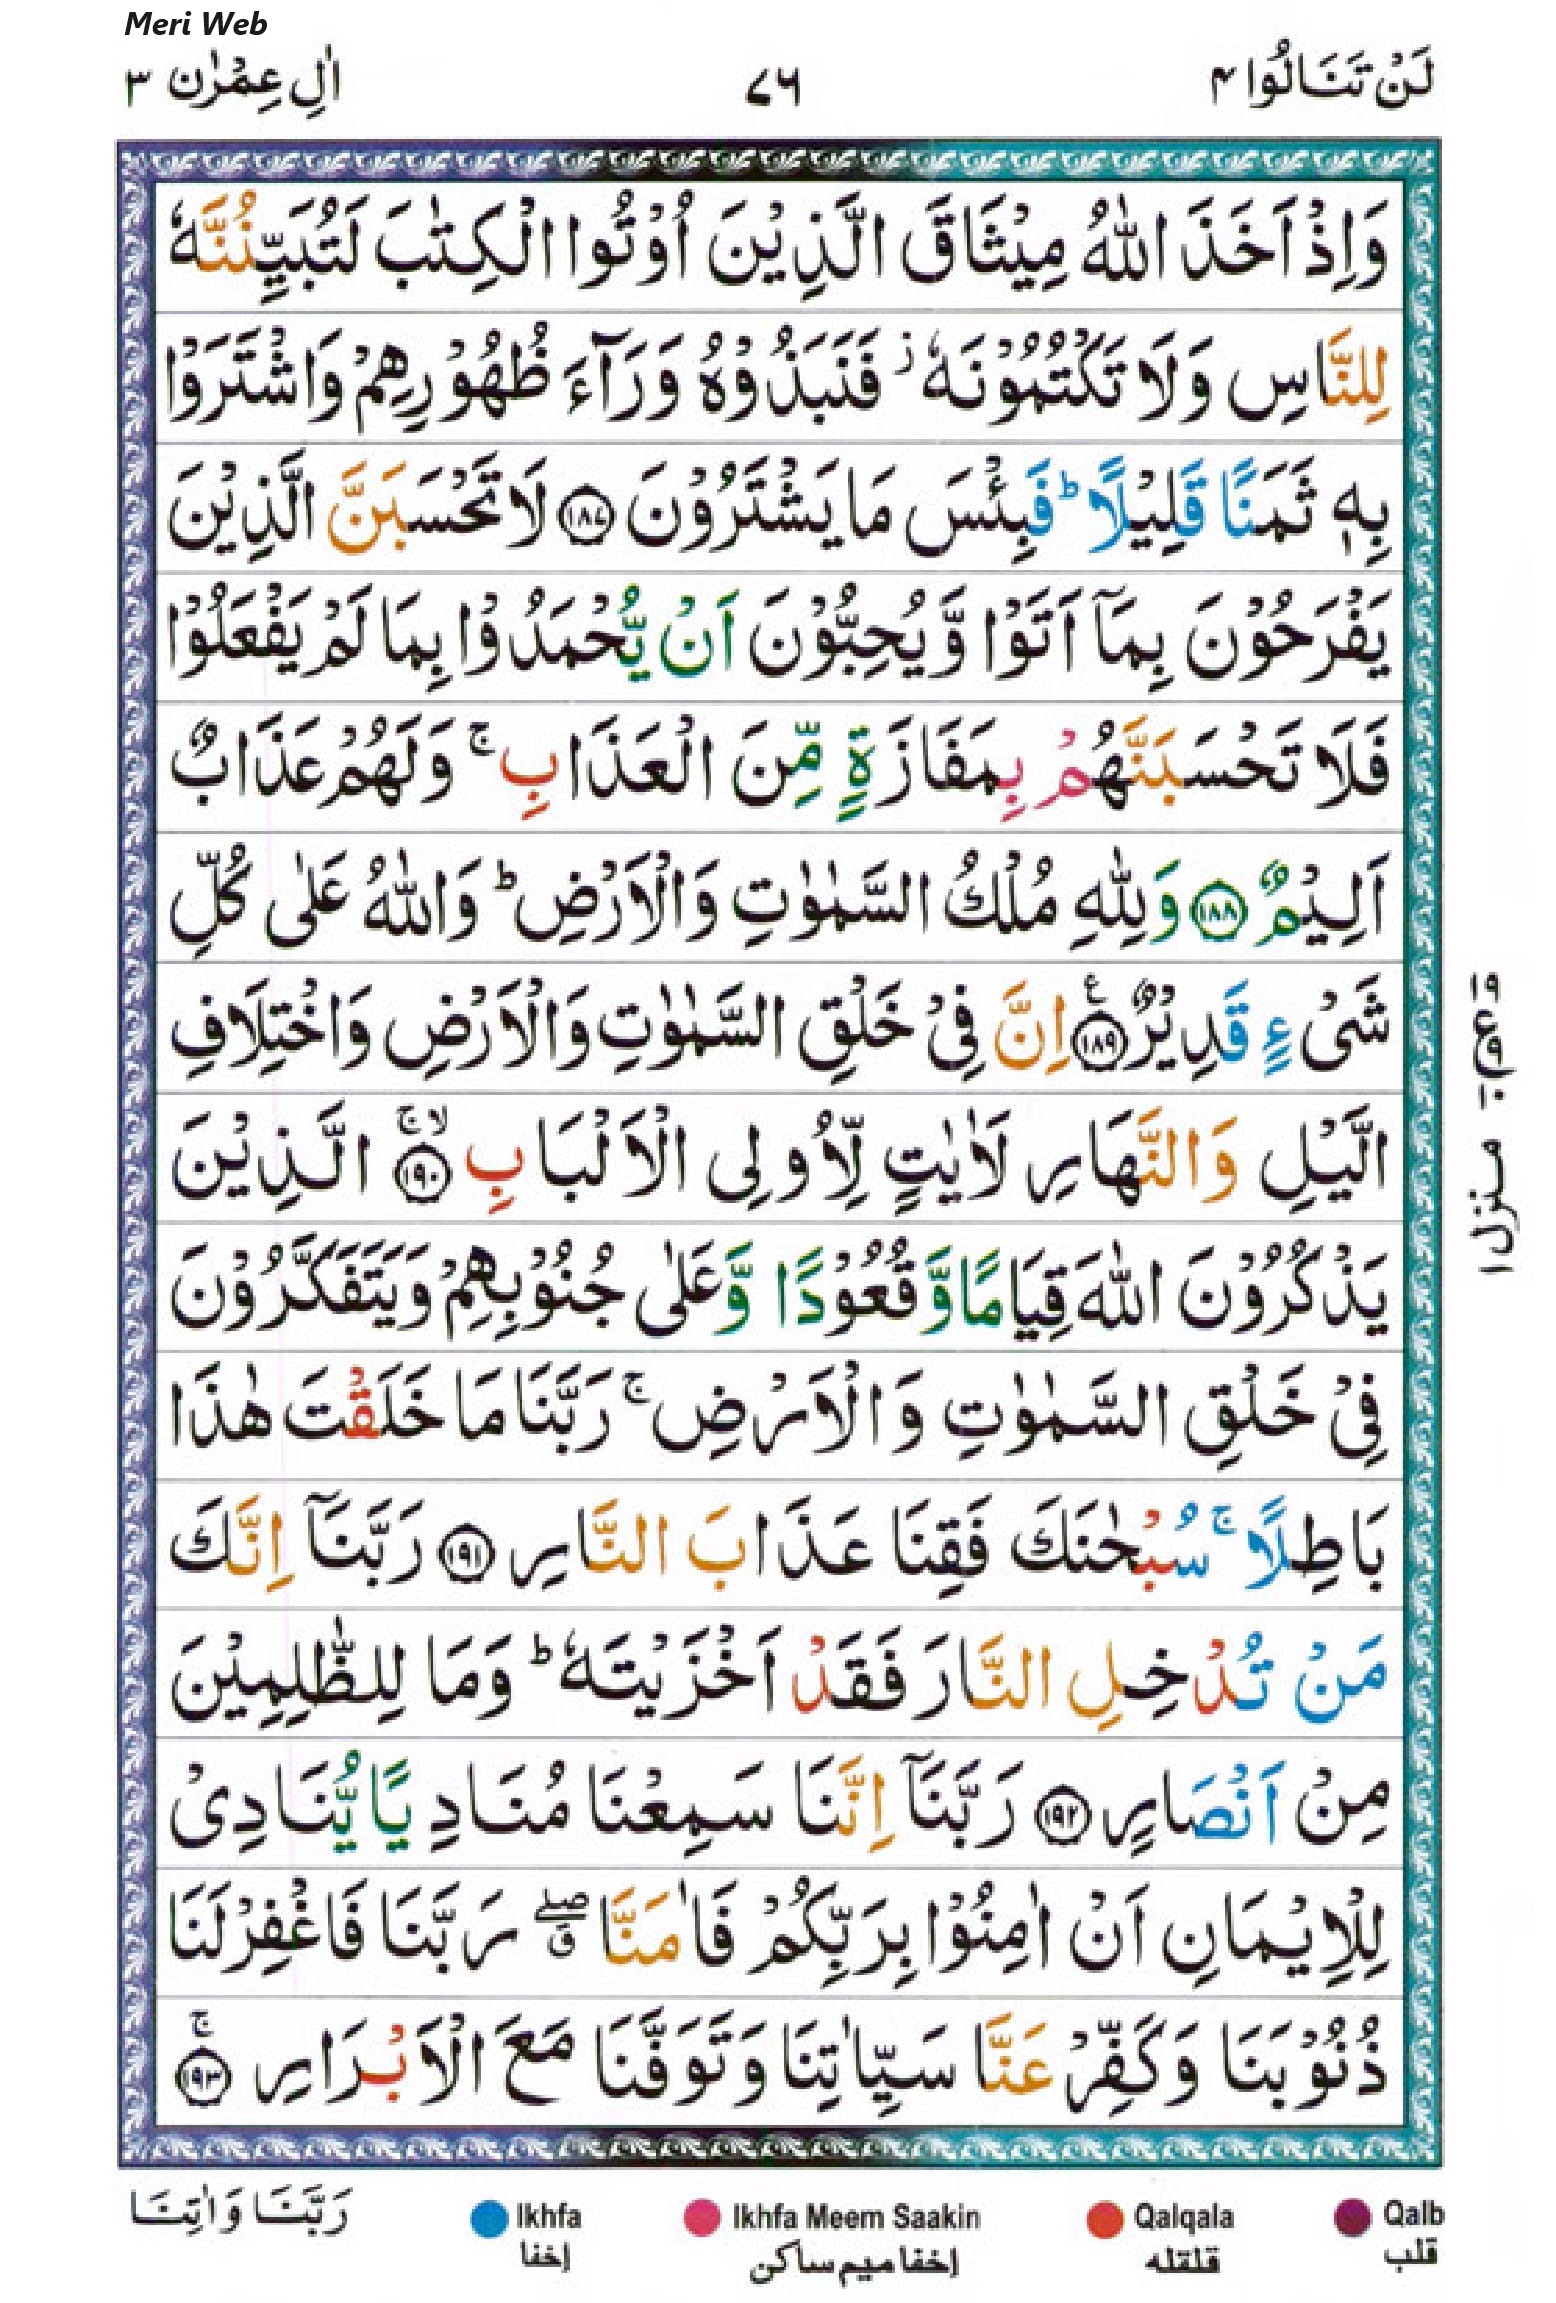 Meri Web
لَنْ تَنَالُوا ۴
۷۶
اٰلِ عِمْرٰن ۳
وَاِذْ اَخَذَ اللّٰهُ مِيْثَاقَ الَّذِيْنَ اُوْتُوا الْكِتٰبَ لَتُبَيِّنُنَّهٗ
لِلنَّاسِ وَلَا تَكْتُمُوْنَهٗ ز فَنَبَذُوْهُ وَرَآءَ ظُهُوْرِهِمْ وَاشْتَرَوْا
بِهٖ ثَمَنًا قَلِيْلًا ؕ فَبِئْسَ مَا يَشْتَرُوْنَ ۝۱۸۷ لَا تَحْسَبَنَّ الَّذِيْنَ
يَفْرَحُوْنَ بِمَآ اَتَوْا وَّيُحِبُّوْنَ اَنْ يُّحْمَدُوْا بِمَا لَمْ يَفْعَلُوْا
فَلَا تَحْسَبَنَّهُمْ بِمَفَازَةٍ مِّنَ الْعَذَابِ ۚ وَلَهُمْ عَذَابٌ
اَلِيْمٌ ۝۱۸۸ وَلِلّٰهِ مُلْكُ السَّمٰوٰتِ وَالْاَرْضِ ؕ وَاللّٰهُ عَلٰى كُلِّ
شَیْءٍ قَدِيْرٌ ۝۱۸۹ ع اِنَّ فِیْ خَلْقِ السَّمٰوٰتِ وَالْاَرْضِ وَاخْتِلَافِ
الَّيْلِ وَالنَّهَارِ لَاٰيٰتٍ لِّاُولِی الْاَلْبَابِ ۝۱۹۰ ۙۚ الَّذِيْنَ
يَذْكُرُوْنَ اللّٰهَ قِيَامًا وَّقُعُوْدًا وَّعَلٰى جُنُوْبِهِمْ وَيَتَفَكَّرُوْنَ
فِیْ خَلْقِ السَّمٰوٰتِ وَالْاَرْضِ ۚ رَبَّنَا مَا خَلَقْتَ هٰذَا
بَاطِلًا ۚ سُبْحٰنَكَ فَقِنَا عَذَابَ النَّارِ ۝۱۹۱ رَبَّنَآ اِنَّكَ
مَنْ تُدْخِلِ النَّارَ فَقَدْ اَخْزَيْتَهٗ ؕ وَمَا لِلظّٰلِمِيْنَ
مِنْ اَنْصَارٍ ۝۱۹۲ رَبَّنَآ اِنَّنَا سَمِعْنَا مُنَادِيًا يُّنَادِیْ
لِلْاِيْمَانِ اَنْ اٰمِنُوْا بِرَبِّكُمْ فَاٰمَنَّا ۖق رَبَّنَا فَاغْفِرْ لَنَا
ذُنُوْبَنَا وَكَفِّرْ عَنَّا سَيِّاٰتِنَا وَتَوَفَّنَا مَعَ الْاَبْرَارِ ۝۱۹۳ ۚ
منزل ۱
رَبَّنَا وَاٰتِنَا
Ikhfa
إخفا
Ikhfa Meem Saakin
إخفا ميم ساكن
Qalqala
قلقله
Qalb
قلب